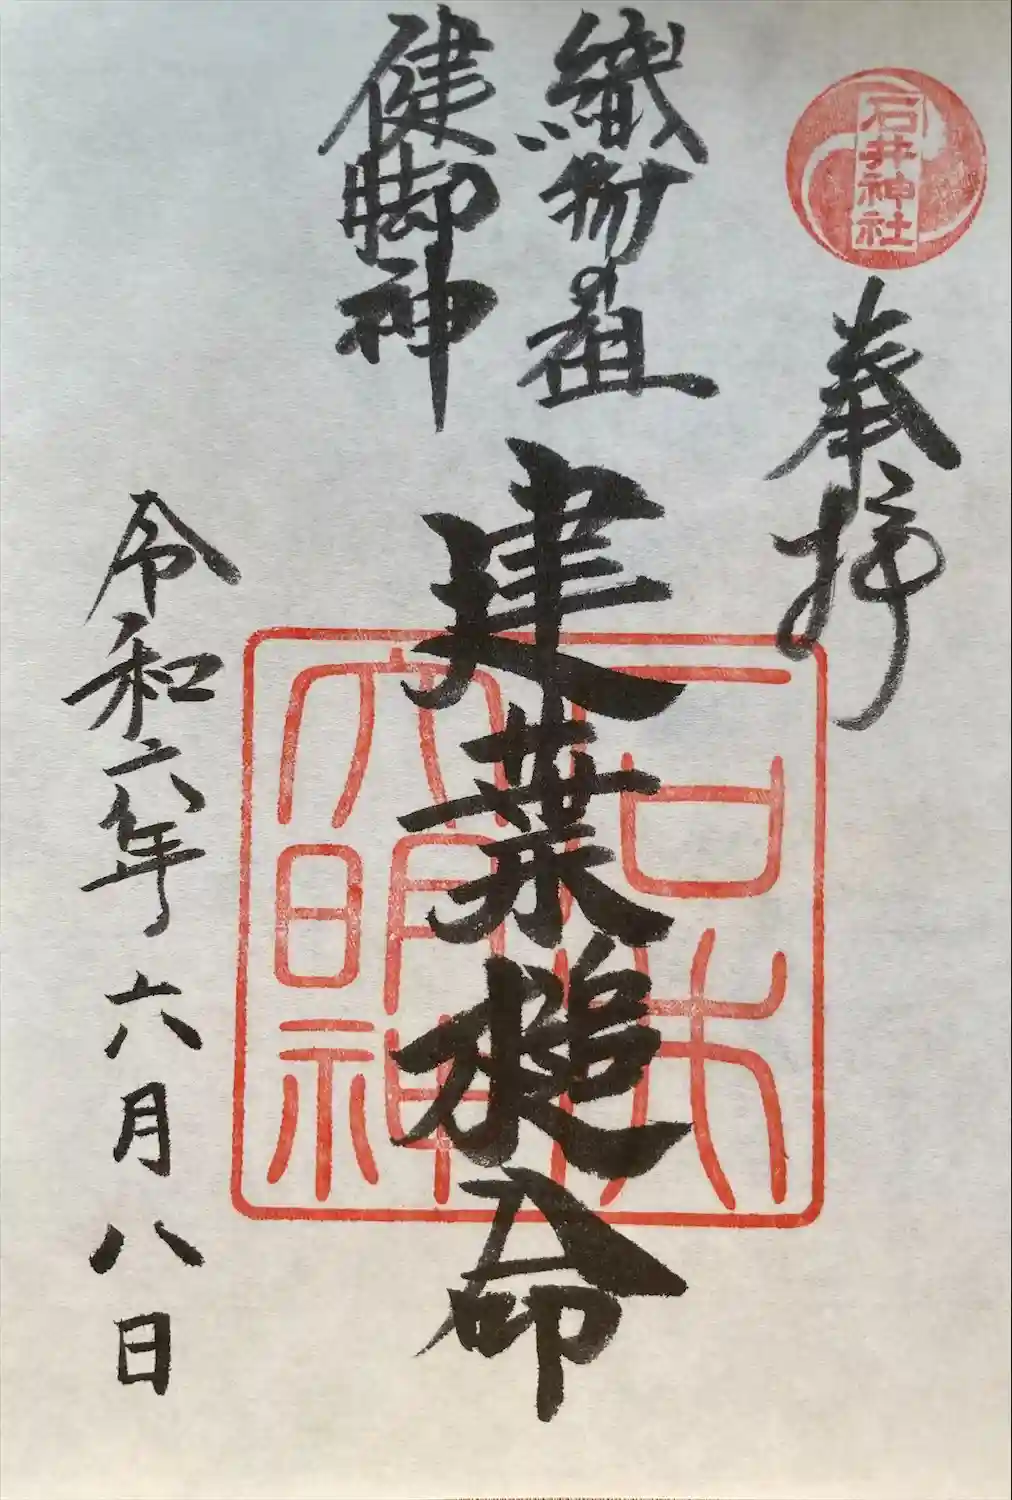 石井神社
奉拝
織物祖
健脚神
建葉槌命
石井
大明神
令和六年六月八日